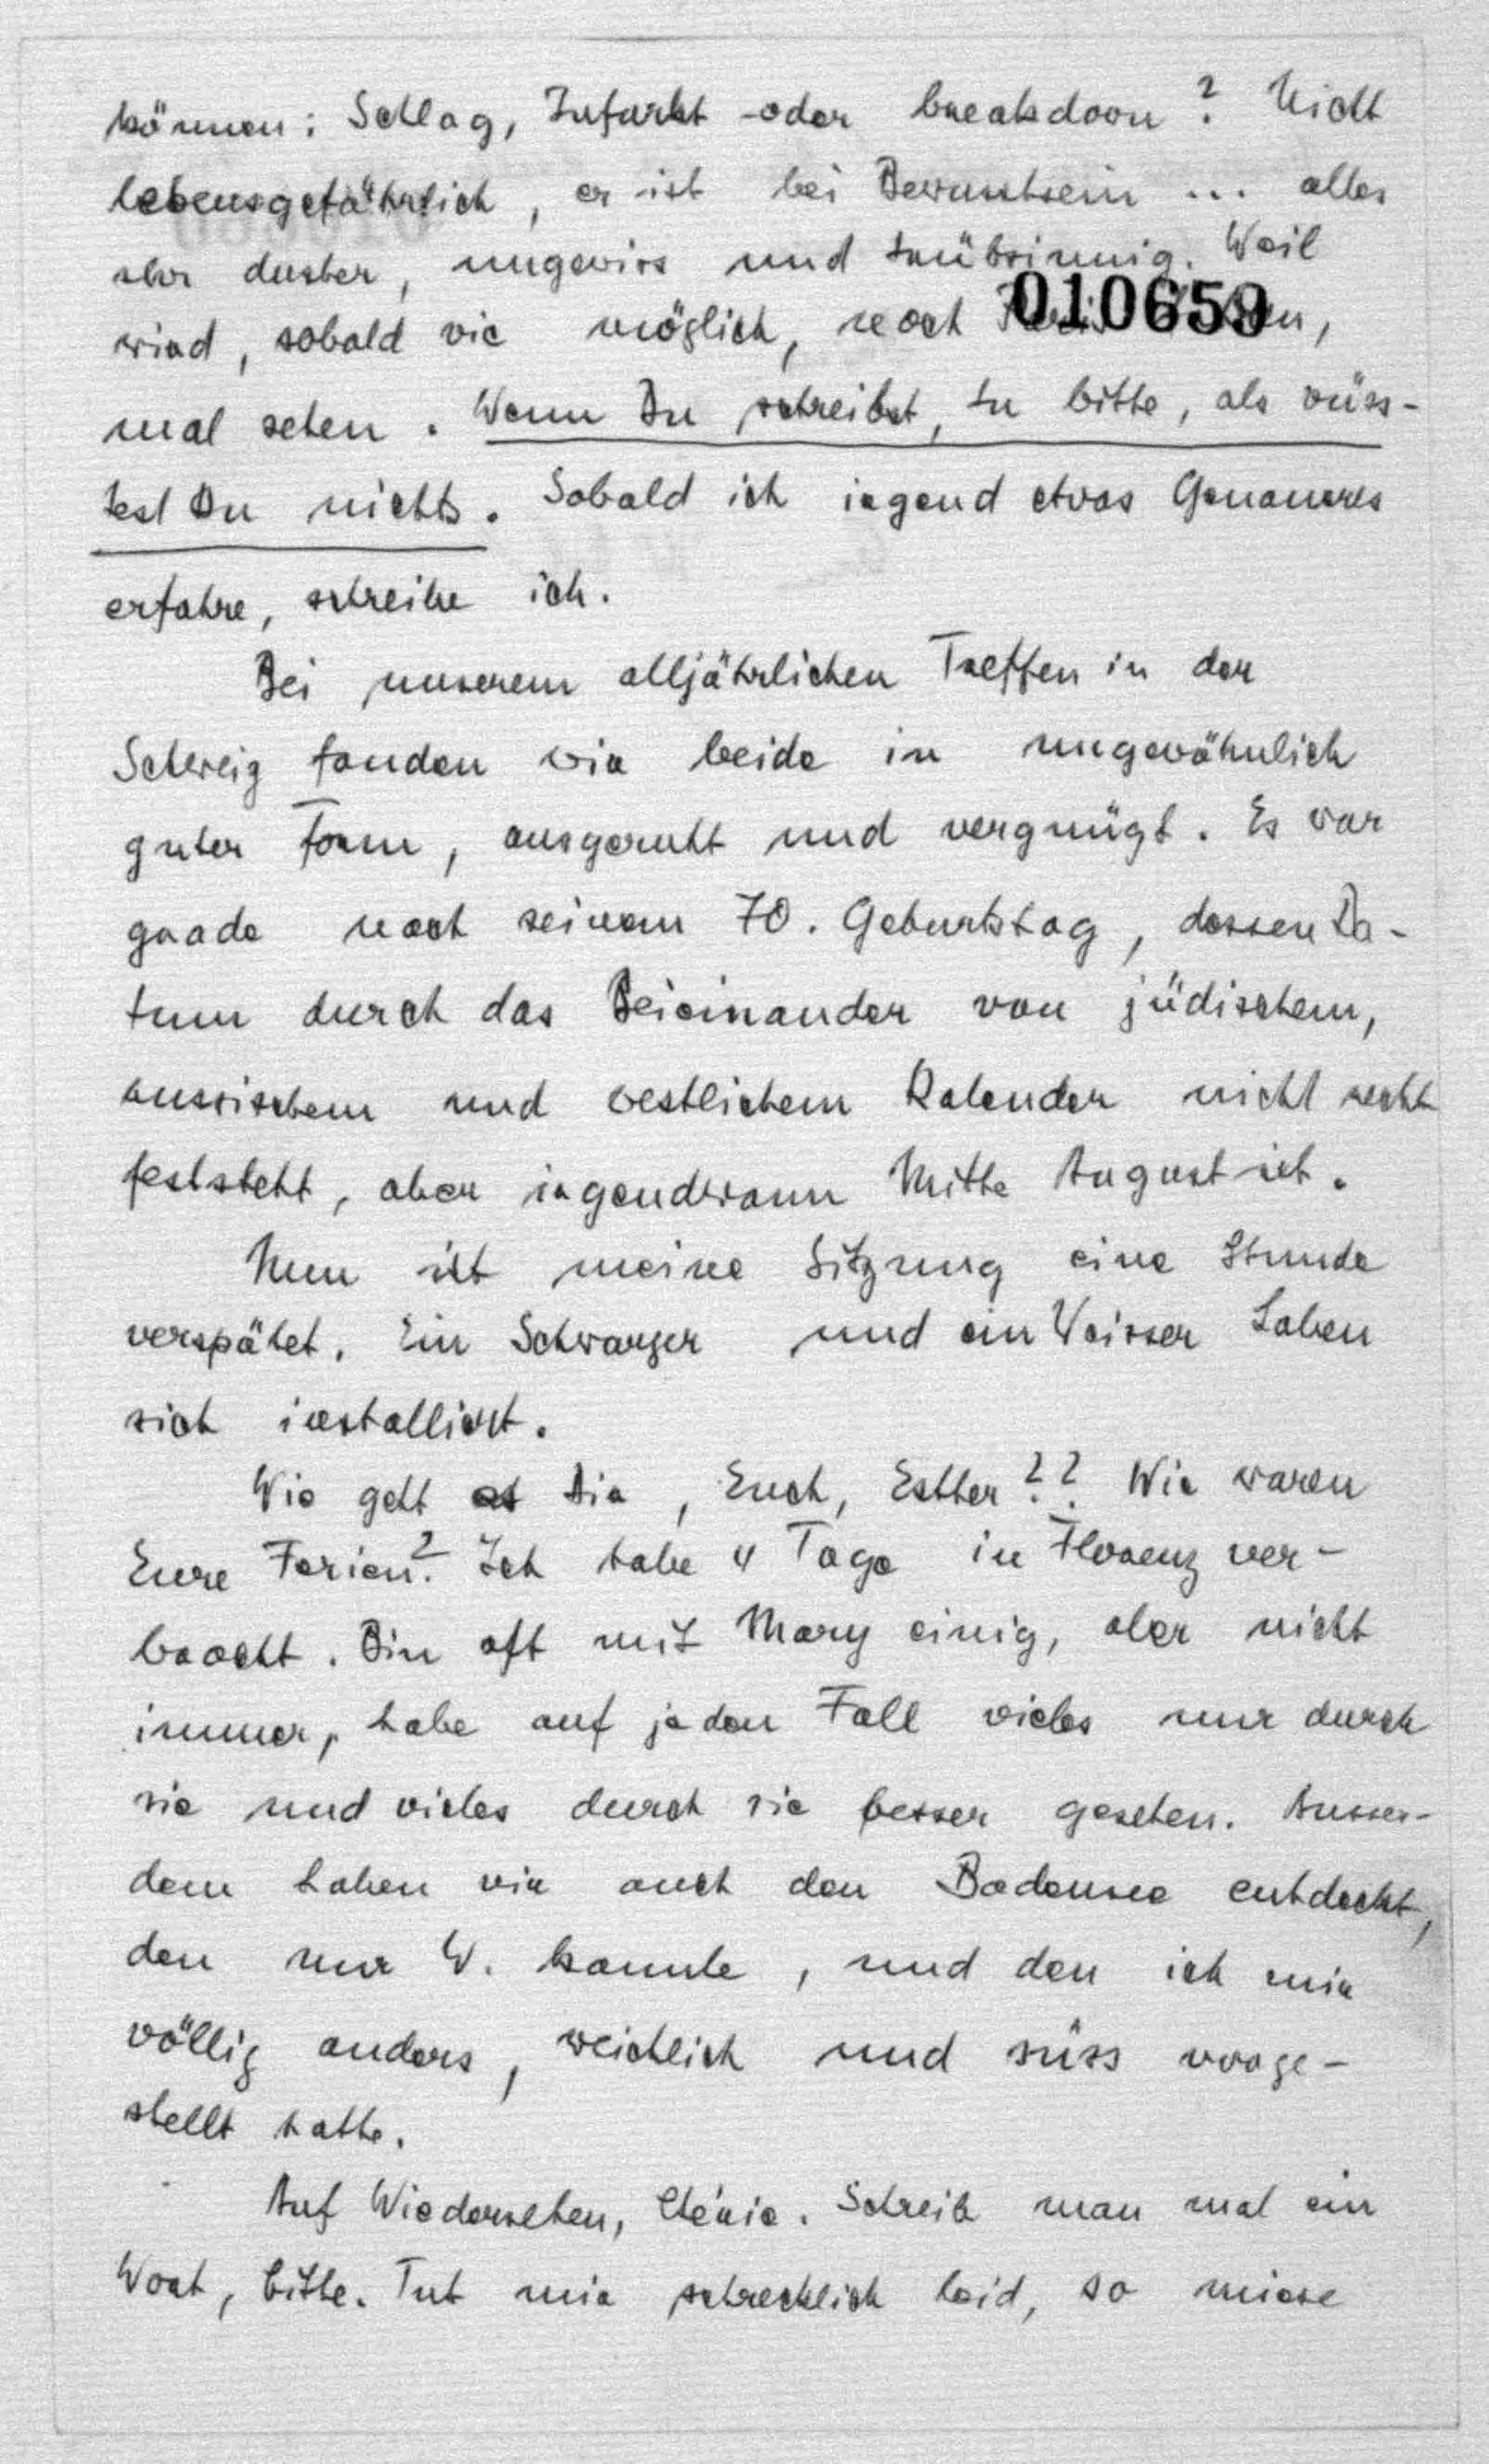 können: Schlag, Infarkt oder breakdoon? Nicht
lebensgefährlich, er ist bei Bewusstsein ... alles
sehr duster, ungewiss und trübsinnig. Weil
wird, sobald wie möglich, nach
010659
mal sehen. Wenn Du schreibst, tu bitte, als wüss-
test Du nichts. Sobald ich irgend etwas Genaueres
erfahre, schreibe ich.
Bei unserem alljährlichen Treffen in der
Schweiz fanden wir beide in ungewöhnlich
guter Form, ausgeruht und vergnügt. Es war
grade nach seinem 70. Geburtstag, dessen Da-
tum durch das Beieinander von jüdischem,
russischem und westlichem Kalender nicht recht
feststeht, aber irgendwann Mitte August ist.
Nun ist meine Sitzung eine Stunde
verspätet. Ein Schwarzer und ein Weisser haben
sich installiert.
Wie geht es Dir, Euch, Esther?? Wie waren
Eure Ferien? Ich habe 4 Tage in Florenz ver-
bracht. Bin oft mit Mary einig, aber nicht
immer, habe auf jeden Fall vieles nur durch
sie und vieles durch sie besser gesehen. Ausser-
dem haben wir auch den Bodensee entdeckt,
den nur W. kannte, und den ich mir
völlig anders, weichlich und süss vorge-
stellt hatte.
Auf Wiedersehen, Chérie. Schreib man mal ein
Wort, bitte. Tut mir schrecklich leid, so miese